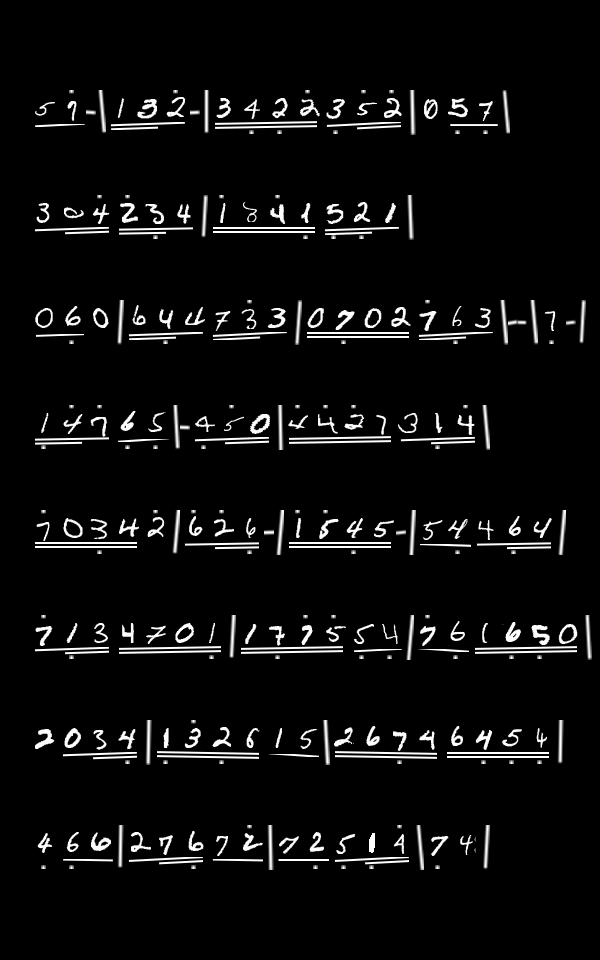 5 7 - | 1 3 2 - | 3 4 2 2 3 5 2 | 0 5 7 |
3 0 4 2 3 4 | 1 8 4 1 5 2 1 |
0 6 0 | 6 4 4 7 3 3 | 0 7 0 2 7 6 3 | - - | 7 - |
1 4 7 6 5 | - 4 5 0 | 4 4 2 7 3 1 4 |
7 0 3 4 2 | 6 2 6 - | 1 5 4 5 - | 5 4 4 6 4 |
7 1 3 4 7 0 1 | 1 7 7 5 5 4 | 7 6 1 6 5 0 |
2 0 3 4 | 1 3 2 6 1 5 | 2 6 7 4 6 4 5 4 |
4 6 6 | 2 7 6 7 2 | 7 2 5 1 4 | 7 4 |